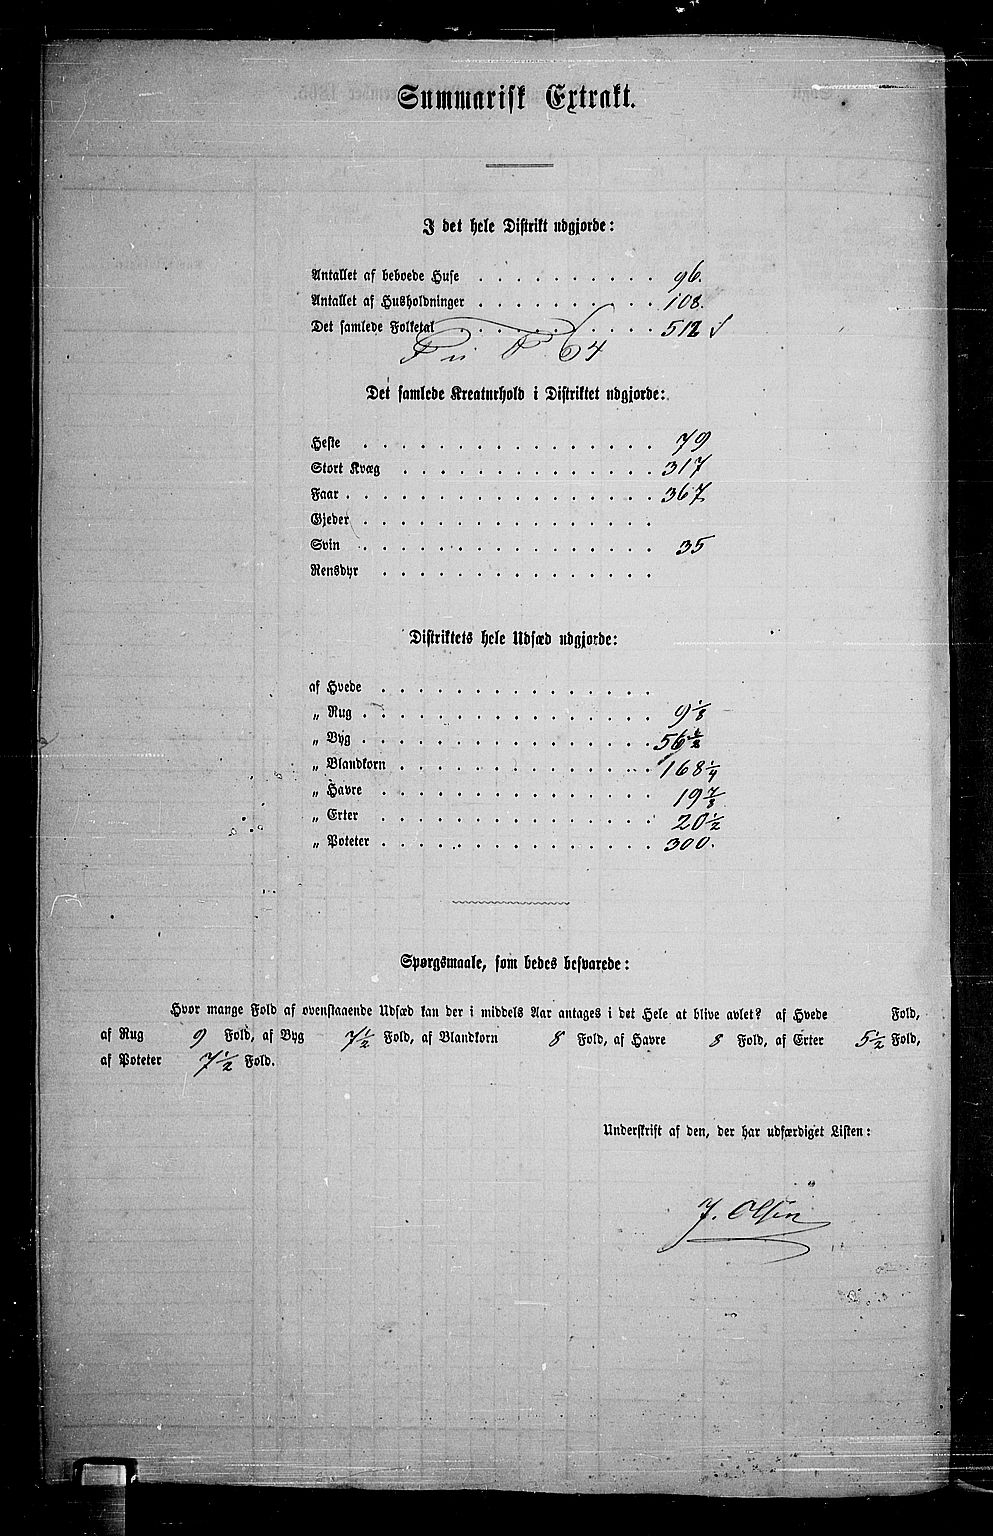 Summarisk Extrakt.
I det hele Distrikt udgjorde:
Antallet af beboede Huse . . . . . . . . . . 96.
Antallet af Husholdninger . . . . . . . . . . 108.
Det samlede Folketal . . . . . . . . . . 512
64
Det samlede Kreaturhold i Distriktet udgjorde:
Heste . . . . . . . . . . . . . . . . 79
Stort Kvæg . . . . . . . . . . . . . . 317
Faar . . . . . . . . . . . . . . . . . 367
Gjeder . . . . . . . . . . . . . . . .
Svin . . . . . . . . . . . . . . . . 35
Rensdyr . . . . . . . . . . . . . . .
Distriktets hele Udsæd udgjorde:
af Hvede . . . . . . . . . . . . . . .
„ Rug . . . . . . . . . . . . . . . . 9 1/8
„ Byg . . . . . . . . . . . . . . . . 56 1/2
„ Blandkorn . . . . . . . . . . . . . . 168 1/4
„ Havre . . . . . . . . . . . . . . . 19 7/8
„ Erter . . . . . . . . . . . . . . . 20 1/2
„ Poteter . . . . . . . . . . . . . . . 300.
Spørgsmaale, som bedes besvarede:
Hvor mange Fold af ovenstaaende Udsæd kan der i middels Aar antages i det Hele at blive avlet? af Hvede Fold,
af Rug 9 Fold, af Byg 7 1/2 Fold, af Blandkorn 8 Fold, af Havre 8 Fold, af Erter 5 1/2 Fold,
af Poteter 7 1/2 Fold.
Underskrift af den, der har udfærdiget Listen:
J. Olsen